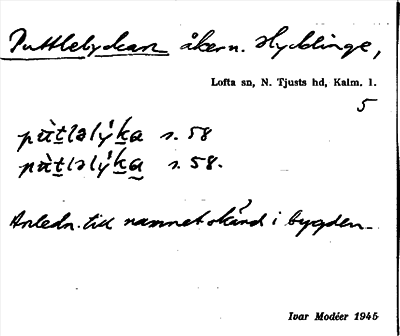 Puttlelyckan åkern. Hycklinge,
Lofta sn, N. Tjusts hd, Kalm. l.
5
pùtləlýka s. 58
pùtləlýka s. 58.
Anledn. till namnet okänd i bygden.
Ivar Modéer 1945